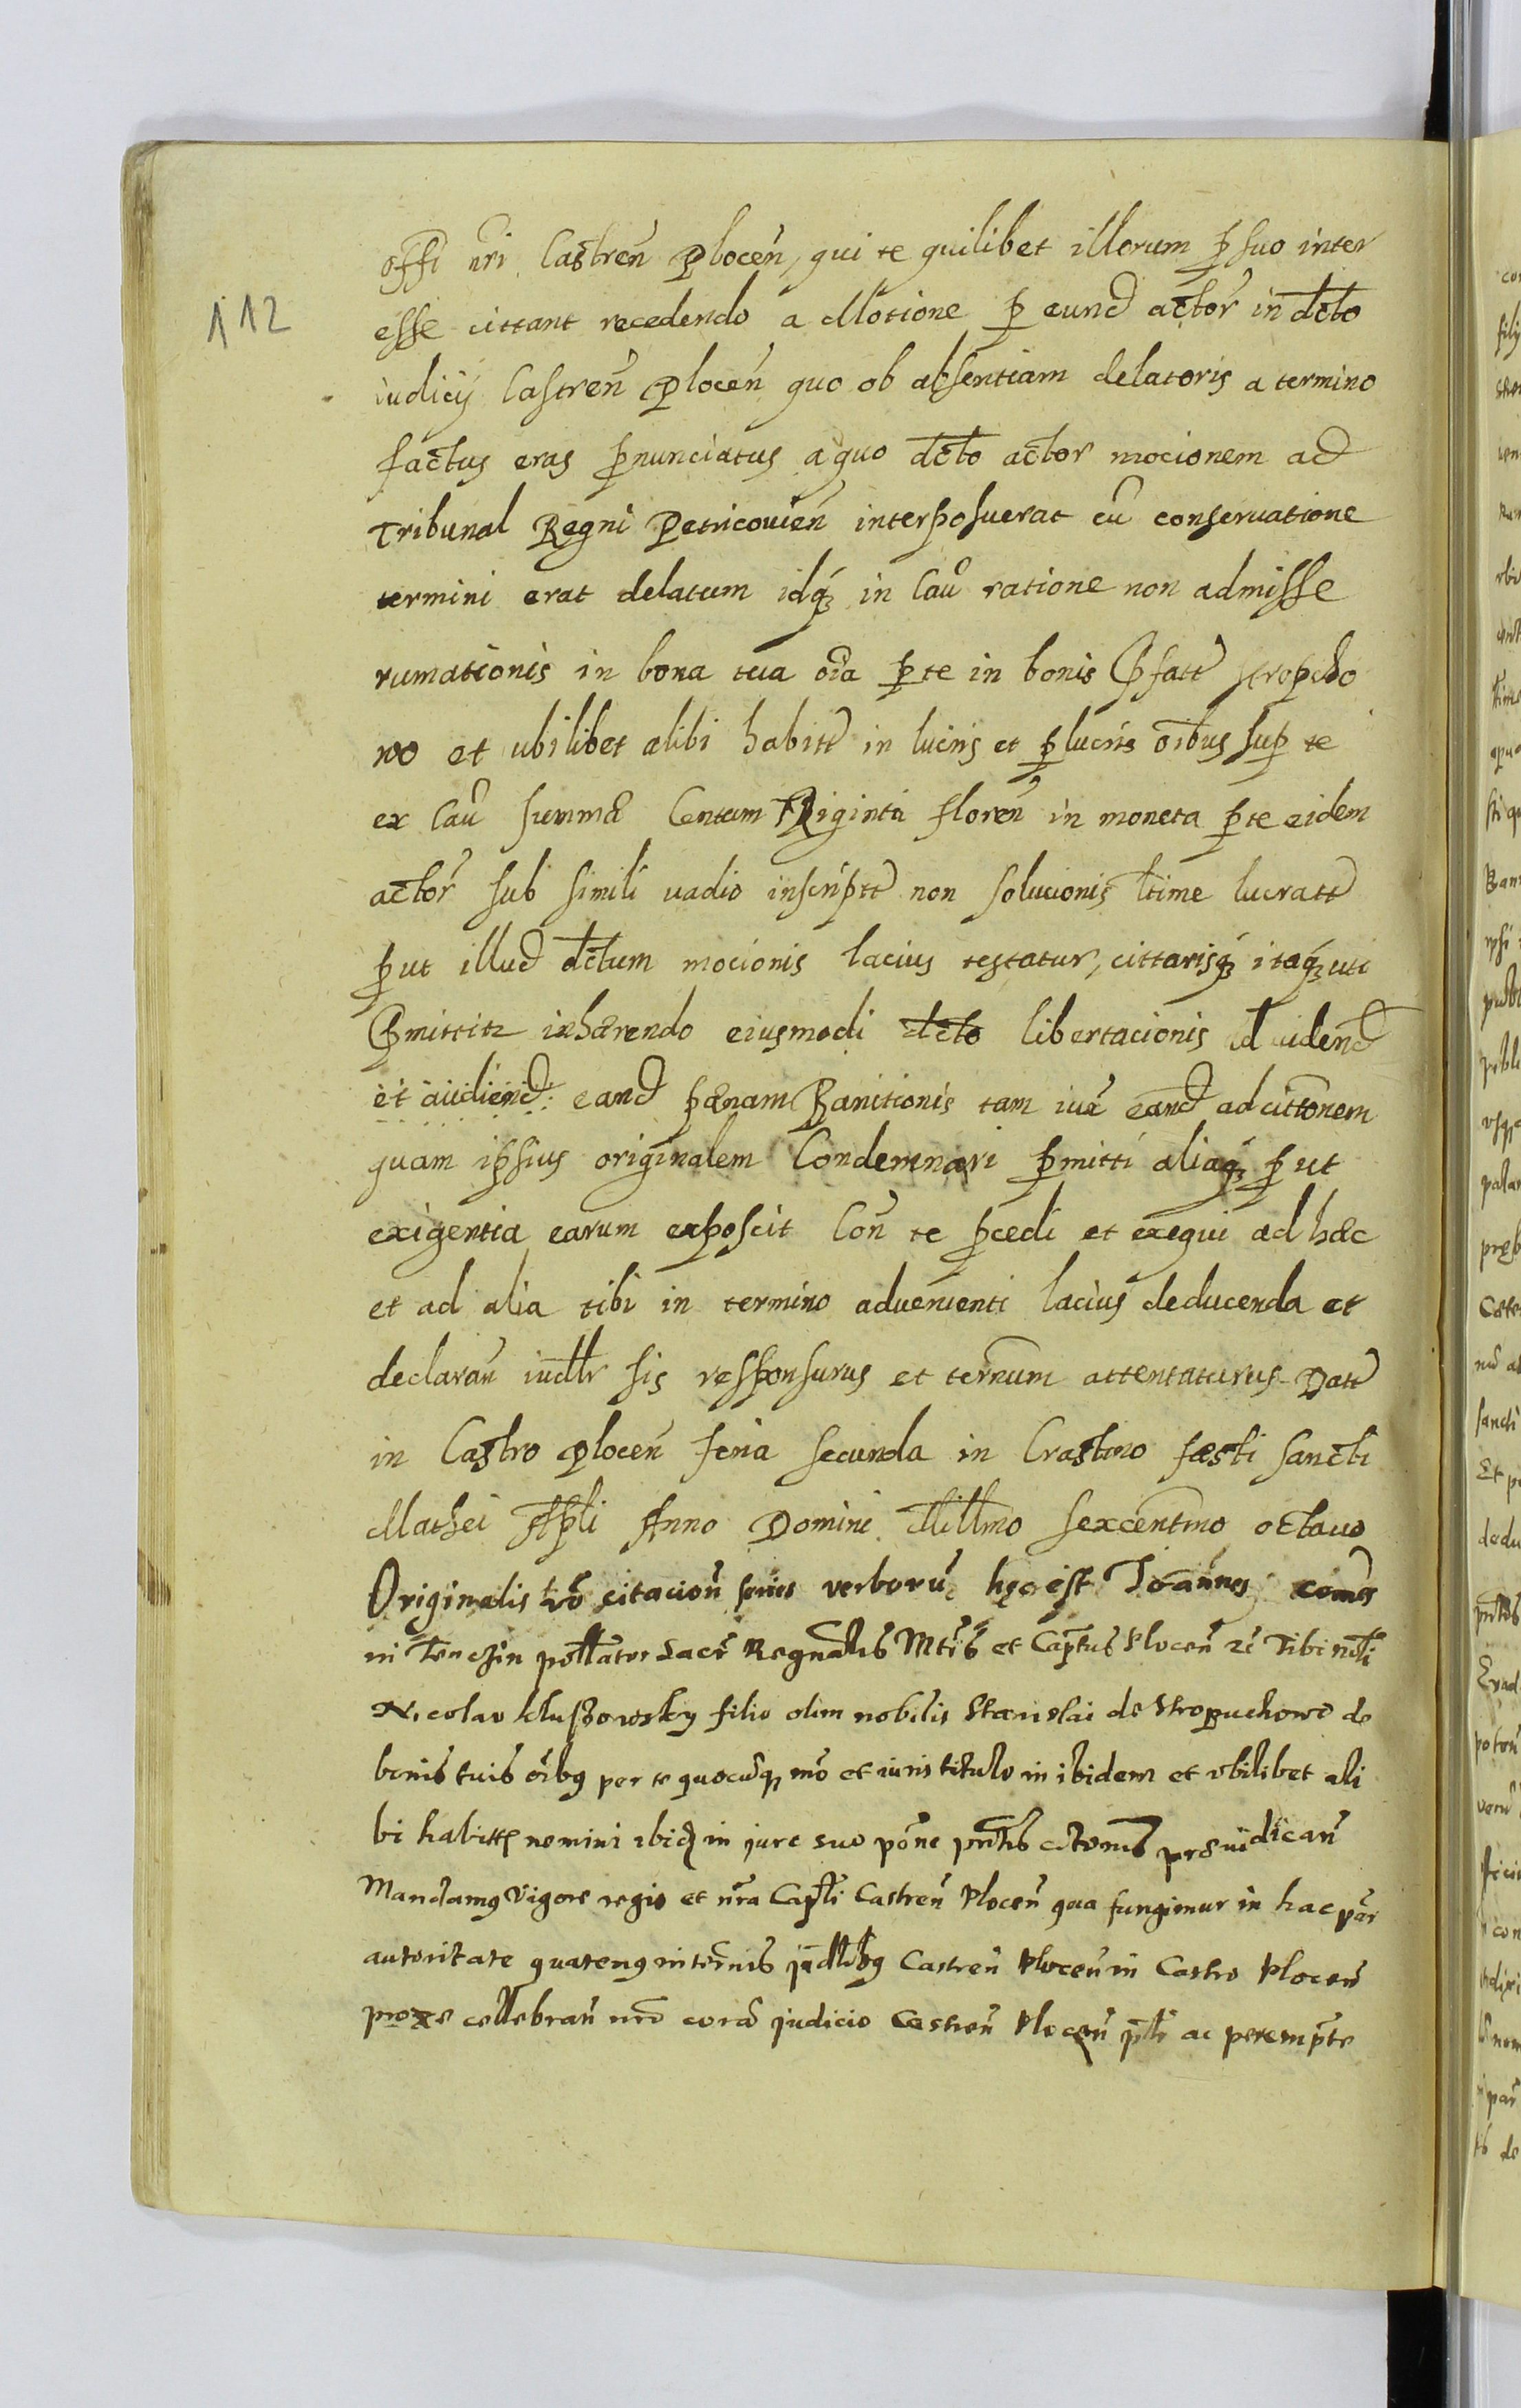 112
offi nri Castren̄ Plocen̄, qui te quilibet illorum ꝑ suo inter
esse cittant recedendo a Motione ꝑ eund actor̄ in dc̄to
iudicij Castren̄ Plocen̄ quo ob absentiam delatoris a termino
factus eras ꝓnunciatus a quo dc̄to actor mocionem ad
Tribunal Regni Petricouien̄ interposuerat cū conseruatione
termini erat delatum idq́ꝫ in Cau ratione non admisse
rumationis in bona tua oīa ꝑ te in bonis p̄fatt Stropcho
wo et ubilibet alibi habitt in lucris et ꝑlucris oībus suꝑ te
ex Cau summa Centum Triginta floren̄ in moneta ꝑ te eidem
actor̄ sub simili uadio inscriptt non solucionis ltime lucratt
ꝓut illud dc̄tum mocionis lacius testatur, cittarisq́ꝫ itaq́ꝫ uti
p̄mittitr inhærendo eiusmodi dc̄to libertacionis ad uidend
et audiend: eand pænam Banitionis tam iux̄ eand ad cittōnem
quam ipsius originalem Condemnari ꝑmitti aliaq́ꝫ ꝓut
exigentia earum exposcit Con̄ te ꝓcedi et exequi ad hæc
et ad alia tibi in termino aduenienti lacius deducenda et
declaran̄ iudlr sis responsurus et ternum attentaturus Datt
in Castro Plocen̄ feria secunda in Crastino fæsti Sancti
Mathei Apli Anno Domini Millmo sexcentmo octauo
Originalis vō citacion̄ series verborū hęc est Joannes comes
in Tenczin pallator Sacr̄ Regnalis Mttis et Captus Plocen̄ zc̄ Tibi nbli
Nicolao Kluszowsky filio olim nobilis Stanislai de Stropuchowo de
bonis tuis oībꝫ per te quocūqꝫ mō et iuris titulo in ibidem et vbilibet ali
bi habitt nemini ibid in jure suo pōne pntis cittonis preiudican̄
Mandamꝫ Vigore regio et nra Caplī Castren̄ Plocen̄ qua fungimur in hac par
autoritate quatenꝫ in ternis judlibꝫ Castren̄ Plocen̄ in Castro Plocen̄
proxe cellebran̄ nrō corā judicio Castren̄ Plocen̄ plr ac perempte